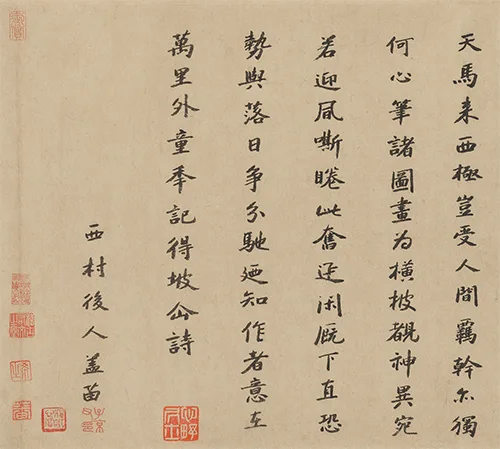 天馬来西極豈受人間羈幹尓獨
何心筆諸圖畫为橫披覩神異宛
若迎凮嘶睠此奮迅闲厩下直恐
勢與落日争分馳廼知作者意在
萬里外童秊記得坡仚詩
西村後人盖苗